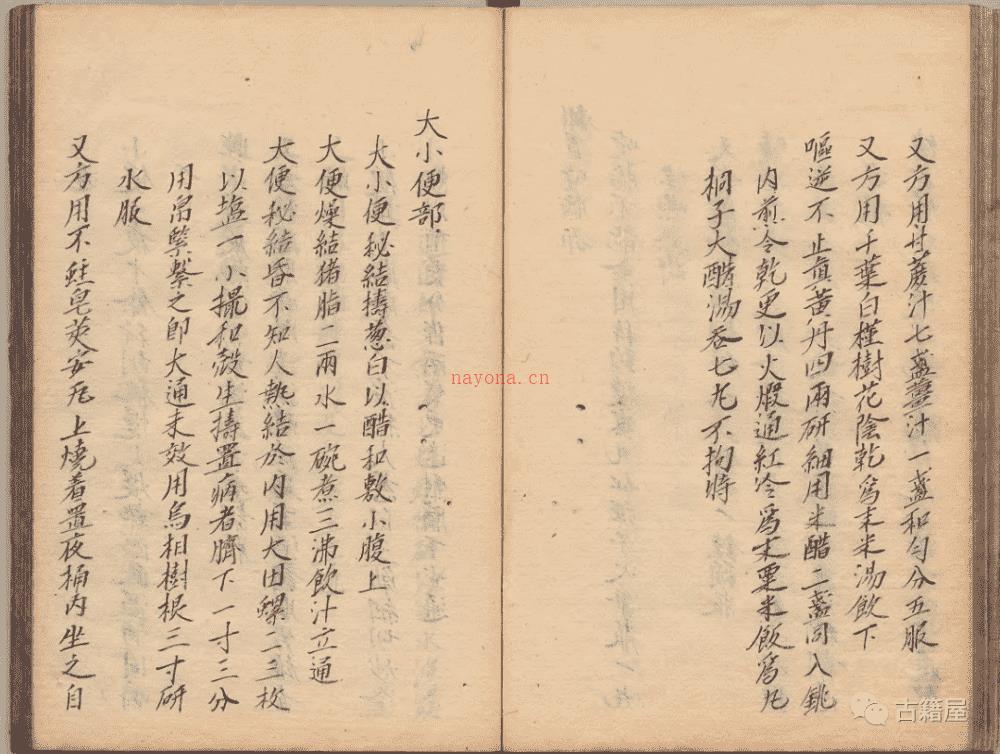 又方用甘蔗汁七盞薑汁一盞和匀分五服
又方用千葉白槿樹花陰乾爲末米湯飲下
嘔逆不止眞黄丹四兩研細用米醋二盞同入銚
内煎令乾更以火煅通紅冷爲末粟米飯爲丸
桐子大醋湯吞七丸不拘時
大小便部
大小便秘結擣葱白以醋和敷小腹上
大便燥結猪脂二兩水一碗煮三沸飲汁立通
大便秘結昏不知人熱結於内用大田螺二三枚
以塩一小撮和殼生擣置病者臍下一寸三分
用帛緊繫之即大通未效用烏桕樹根三寸研
水服
又方用不蛀皂莢安瓦上燒着置夜桶内坐之自
nayona.cn
古籍屋